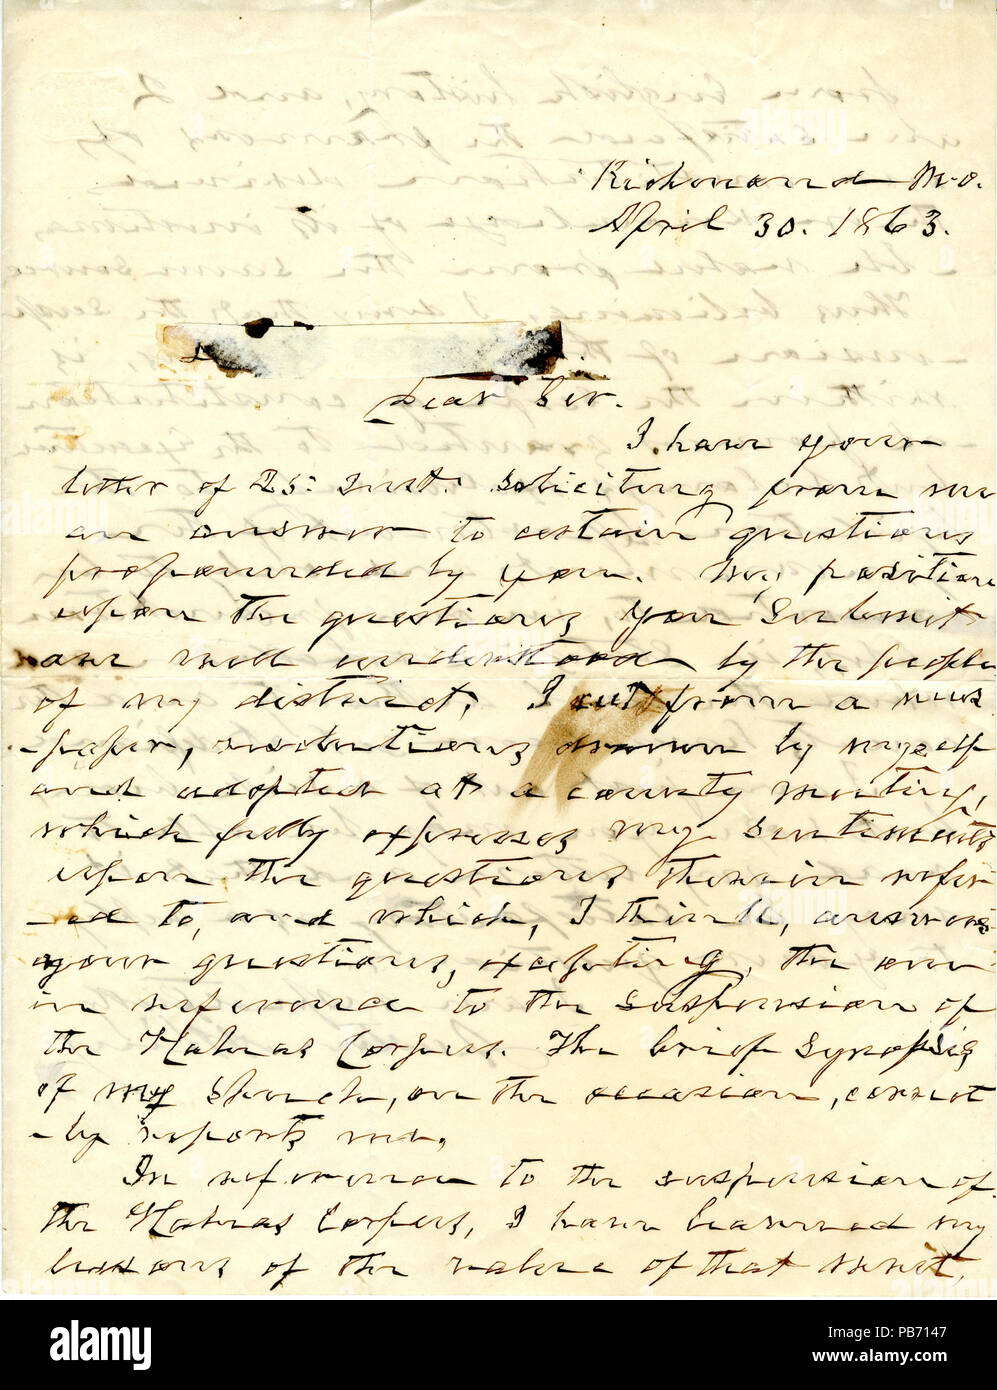 Richmond Mo.
April 30. 1863.
Dear Sir.
I have your
letter of 25: Inst. soliciting from me
an answer to certain questions
propounded by you. My position
upon the questions you submit
are well understood by the people
of my district. I cut from a news
-paper, resolutions drawn by myself
and adopted at a county meeting,
which fully expresses my sentiments
upon the questions therein refer
-ed to, and which, I think, answers
your questions, excepting, the one
in reference to the suspension of
the Habeas Corpus. The brief synopsis
of my speech, on the occasion, correct
-ly reports me.
In reference to the suspension of
the Habeas Corpus, I have learned my
lessons of the value of that writ,
alamy
PB7147
www.alamy.com